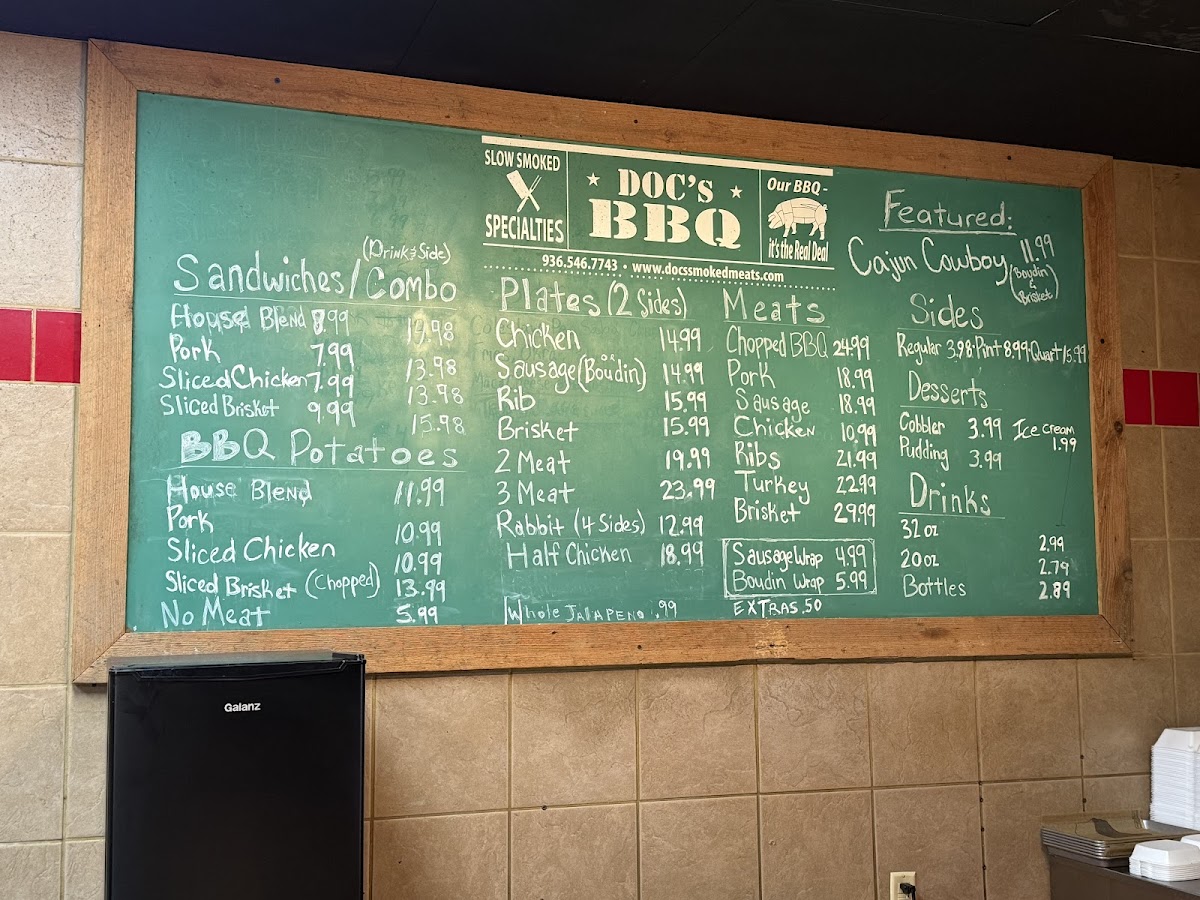 SLOW SMOKED
SPECIALTIES
DOC'S
BBQ
Our BBQ -
it's the Real Deal
936.546.7743 • www.docssmokedmeats.com
(Drink & Side)
Sandwiches/Combo
House Blend 8.99 14.98
Pork 7.99 13.98
Sliced Chicken 7.99 13.98
Sliced Brisket 9.99 15.98
BBQ Potatoes
House Blend 11.99
Pork 10.99
Sliced Chicken 10.99
Sliced Brisket (Chopped) 13.99
No Meat 5.99
Plates (2 Sides)
Chicken 14.99
Sausage (Boudin) 14.99
Rib 15.99
Brisket 15.99
2 Meat 19.99
3 Meat 23.99
Rabbit (4 Sides) 12.99
Half Chicken 18.99
Whole JALAPENO .99
Meats
Chopped BBQ 24.99
Pork 18.99
Sausage 18.99
Chicken 10.99
Ribs 21.99
Turkey 22.99
Brisket 29.99
Sausage Wrap 4.99
Boudin Wrap 5.99
EXTRAS .50
Featured:
Cajun Cowboy 11.99
(Boudin
&
Brisket)
Sides
Regular 3.98 • Pint 8.99, Quart 15.99
Desserts
Cobbler 3.99 Ice cream
1.99
Pudding 3.99
Drinks
32 oz 2.99
20 oz 2.79
Bottles 2.89
Galanz